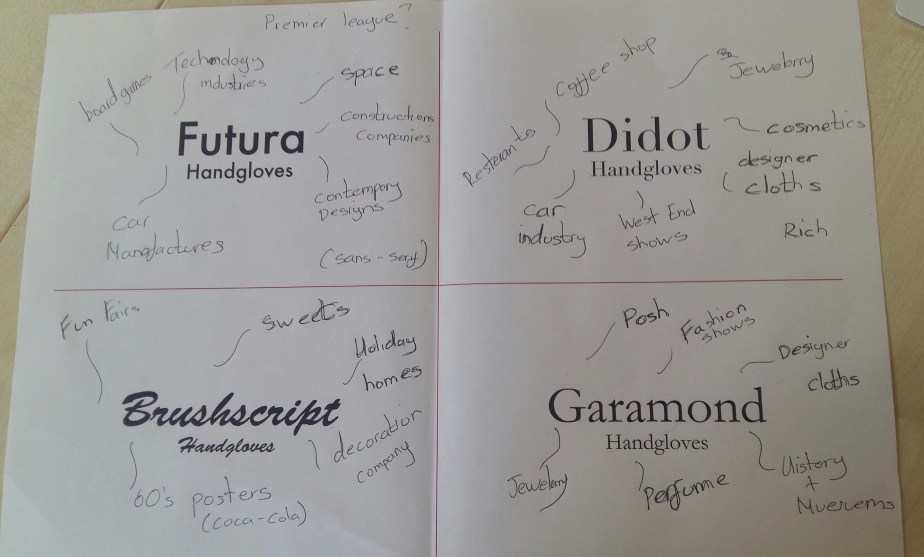 Premier league?
Technology
industries
board games
space
Constructions
Companies
Futura
Handgloves
Contempory
Designs
Car
Manafactures
(sans-serif)
Coffee shop
Jewelerry
Resterants
Didot
Handgloves
cosmetics
designer
cloths
Car
industry
West End
shows
Rich
Fun Fairs
sweets
Holiday
homes
Brushscript
Handgloves
decoration
company
60's posters
(coca-cola)
Posh
Fashion
shows
Designer
cloths
Garamond
Handgloves
Jewelerry
Perfume
History
+